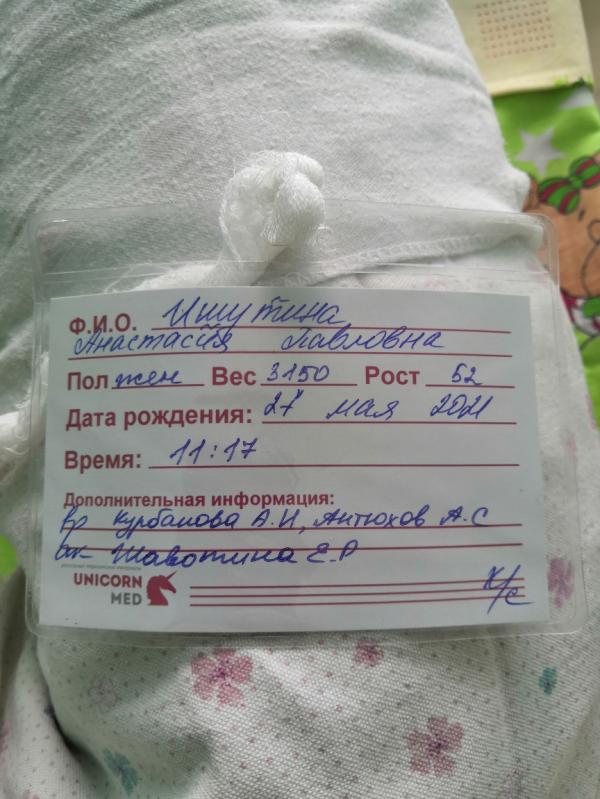 Ф.И.О. Ишутина
Анастасия Павловна
Пол жен Вес 3150 Рост 52
Дата рождения: 27 мая 2021
Время: 11:17
Дополнительная информация:
вр Курбанова А.И, Антюхов А.С
ак- Е.Р
UNICORN
MED
к/с